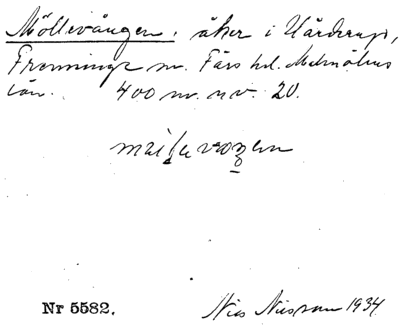 Möllevången, åker i Vårderup,
Frenninge sn. Färs hd. Malmöhus
län. 400 m. n.v. 20.
Nr 5582. Nils Nilsson 1934